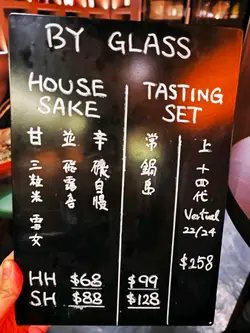 BY GLASS
HOUSE
SAKE
甘 三粒米 雪女
並 飛露喜
辛 磯自慢
HH $68
SH $88
TASTING
SET
常 鍋島
$99
$128
上 十四代
Vertical
22/24
$258